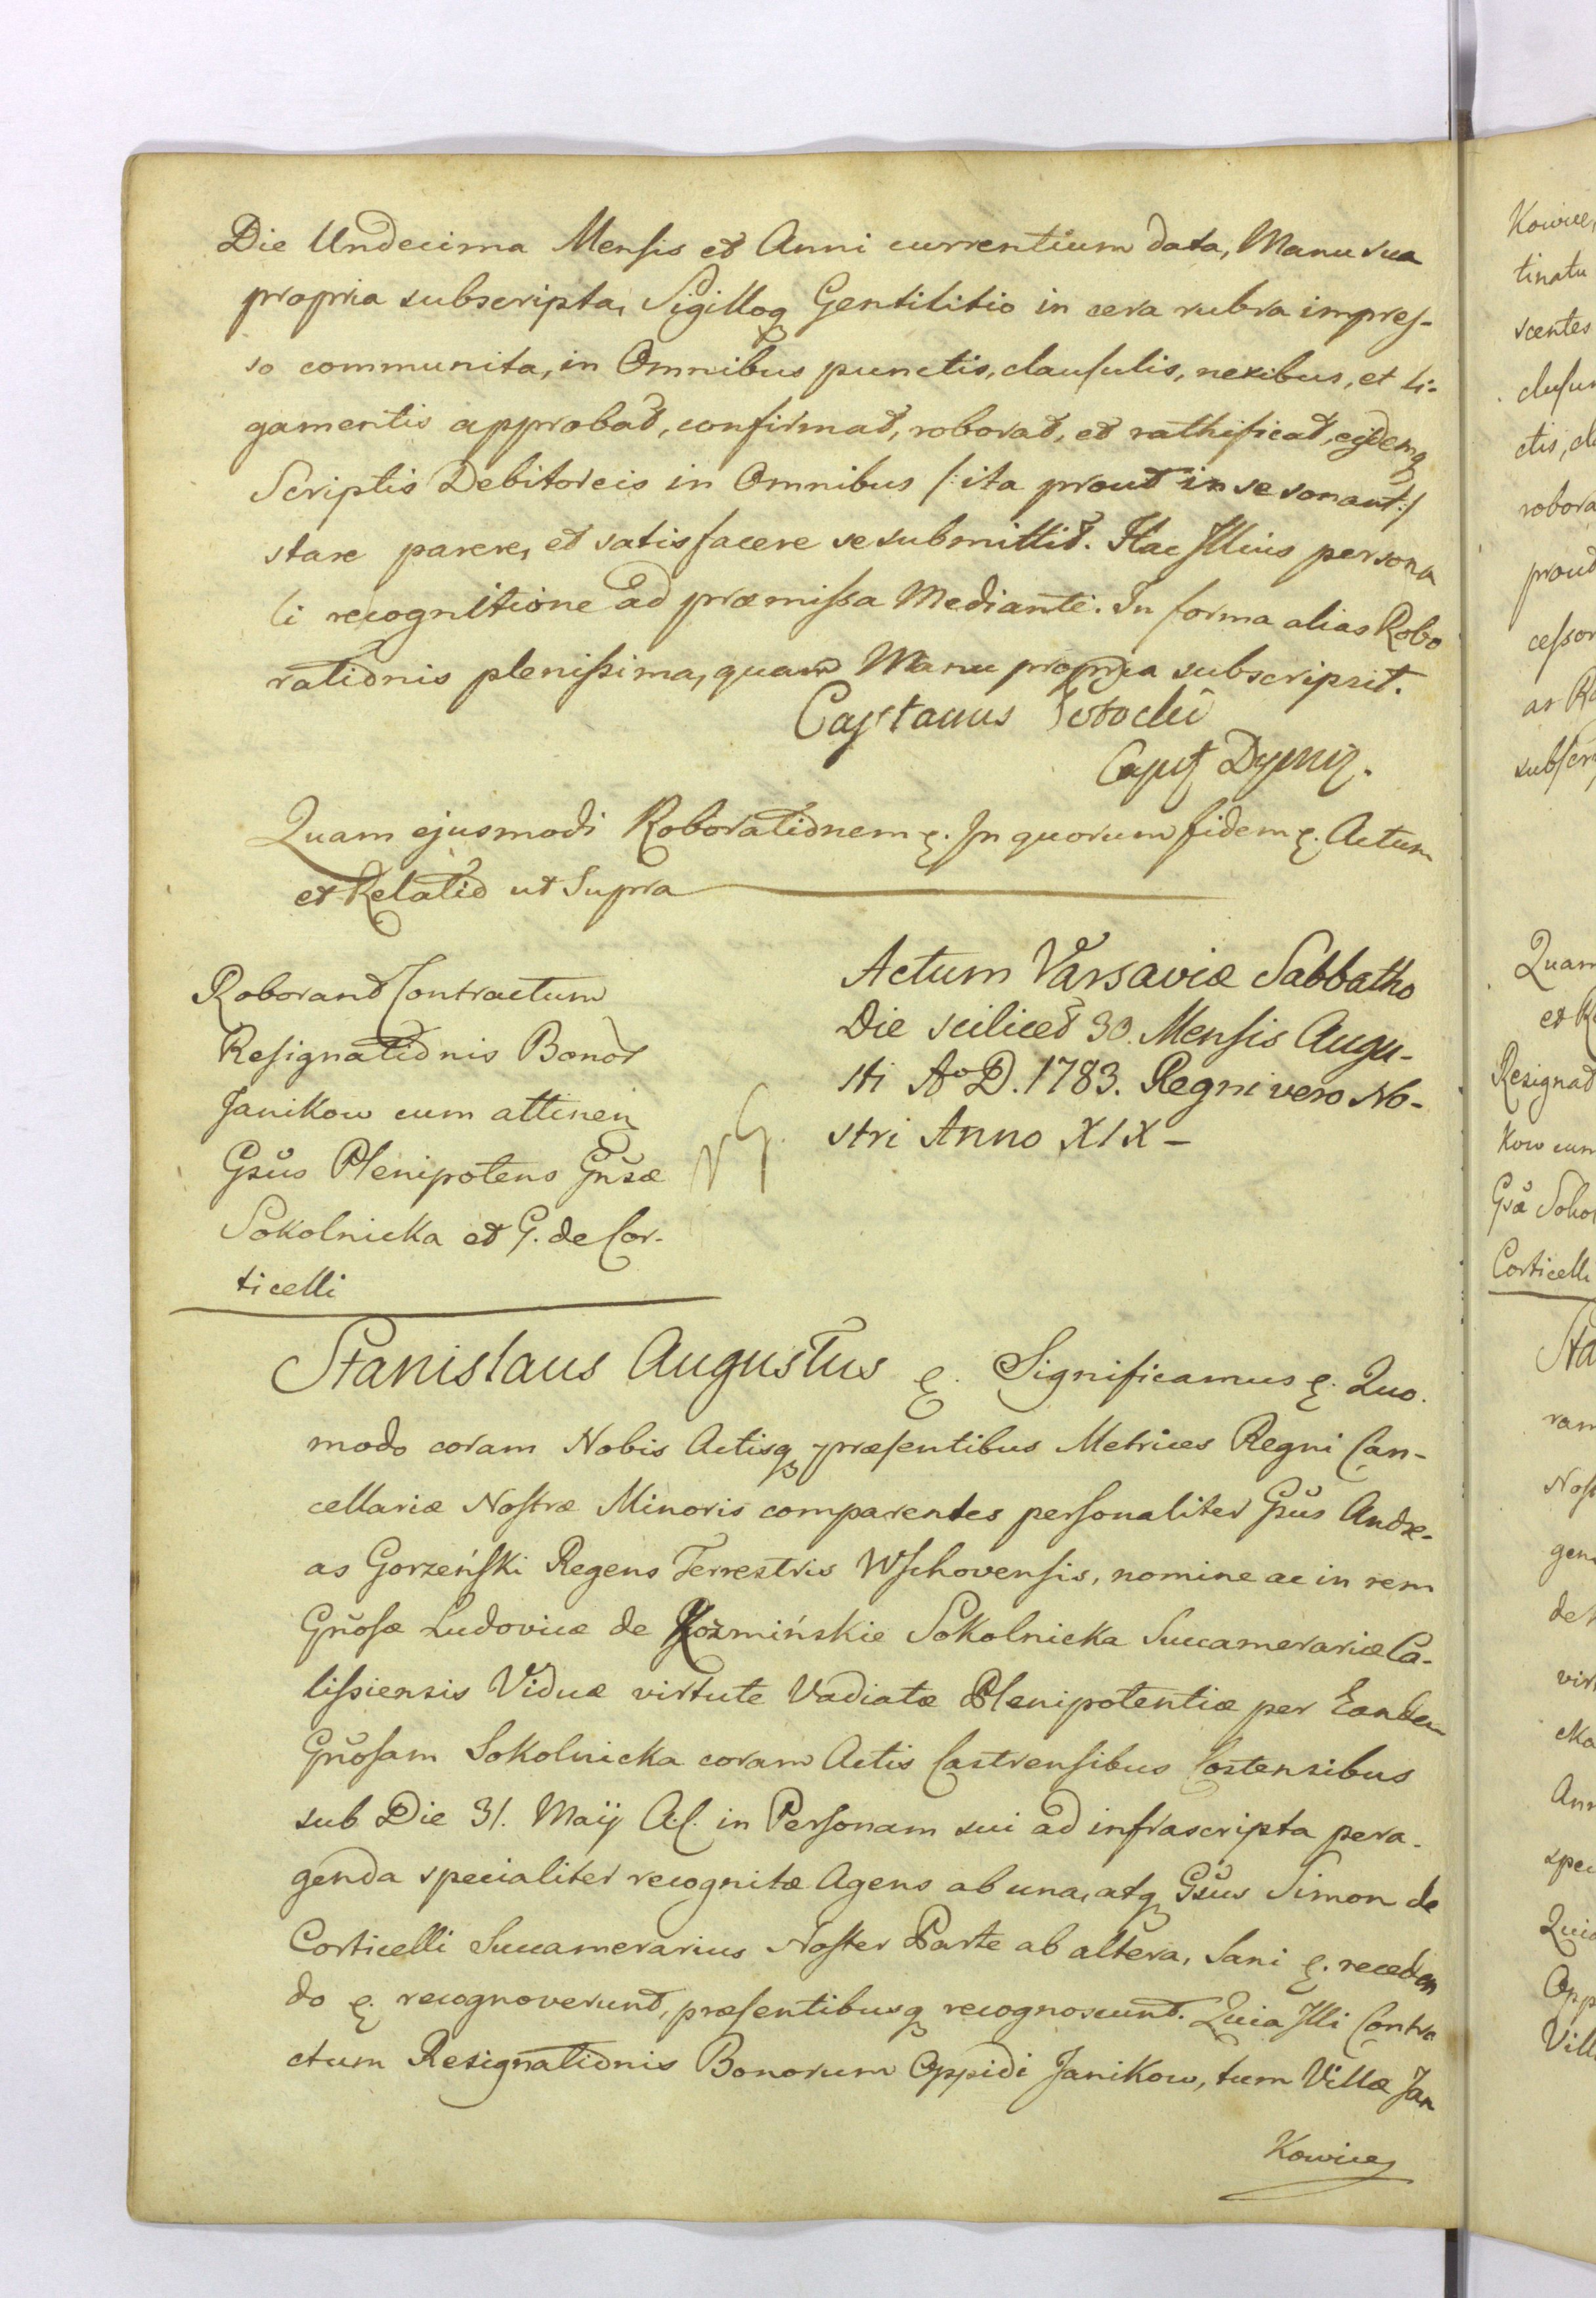 Die Undecima Mensis et Anni currentium data, Manu sua
propria subscripta, Sigilloq Gentilitio in cera rubra impres-
so communita, in Omnibus punctis, clausulis, nexibus, et li-
gamentis approbat, confirmat, roborat, et rathificat, ejsdemq
Scriptis Debitoreis in Omnibus /: ita prout in se sonant :/
stare parere, et satisfacere se submittit. Hac Illius persona
li recognitione ad præmissa Mediante. In forma alias Robo
rationis plenissima, quam Manu propria subscripsit.
Cajetanus
Capit Dymiz.
Quam ejusmodi Roborationem &. In quorum fidem &. Actum
et Relatio ut Supra
Roborant Contractum
Resignationis Bonor
Janikow cum attinen
Gsus Plenipotens Gnsæ
Sokolnicka et G. de Cor-
ticelli
Actum Varsaviæ Sabbatho
Die scilicet 30. Mensis Augu-
sti Ao D. 1783. Regni vero No-
stri Anno XIX -
Stanislaus Augustus &. Significamus &. Quo.
modo coram Nobis Actisq præsentibus Metrices Regni Can-
cellariæ Nostræ Minoris comparentes personaliter Gsus Andre-
as Gorzeński Regens Terrestris Wschovensis, nomine ac in rem
Gnosæ Ludovicæ de Koźmińskie Sokolnicka Succamerariæ Ca-
lissiensis Viduæ virtute Vadiatæ Plenipotentiæ per Eandem
Gnosam Sokolnicka coram Actis Castrensibus Costensibus
sub Die 31. Maij A.C. in Personam sui ad infrascripta pera-
genda specialiter recognitæ Agens ab una, atq Gsus Simon de
Corticelli Succamerarius Noster Parte ab altera, Sani &. receden
do &. recognoverunt, præsentibusq recognoscunt. Quia Illi Contra
ctum Resignationis Bonorum Oppidi Janikow, tum Villæ Jan
Kowice
Kowice,
tinatu
scentes
ctis, cl
robora
prout
cessor
as Ro
subscr
Quam
et Re
Resignat
Kow cum
Gsa Sokol
Corticelli
Sta
ram
Nos
gen
de
virt
cka
Ann
spec
Quia
Opp
Vill